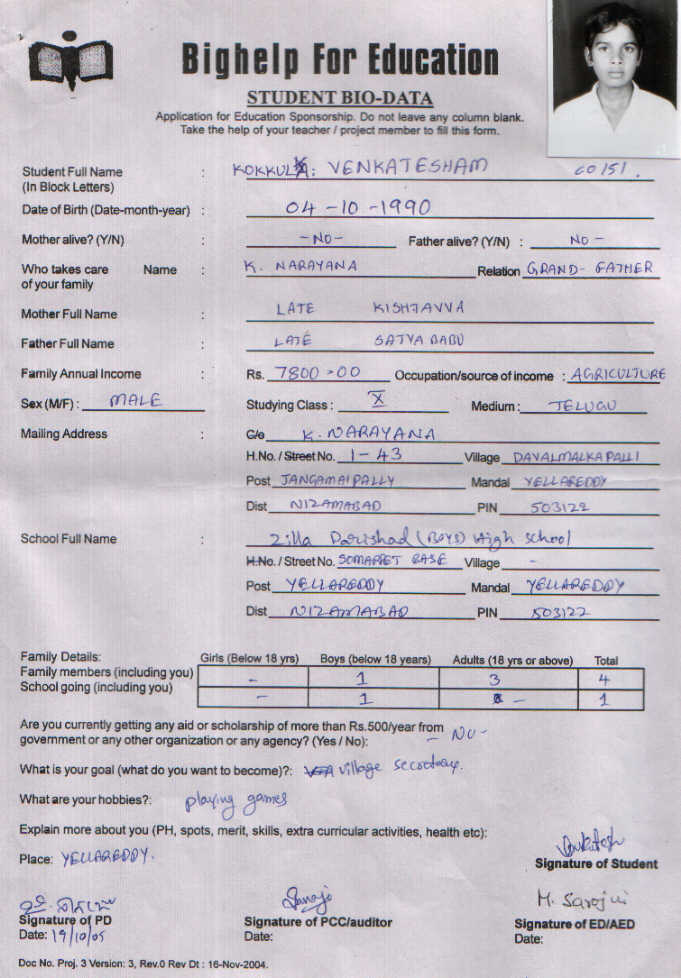 Bighelp For Education
STUDENT BIO-DATA
Application for Education Sponsorship. Do not leave any column blank.
Take the help of your teacher / project member to fill this form.
Student Full Name : KOKKULA: VENKATESHAM 60151.
(In Block Letters)
Date of Birth (Date-month-year) : 04-10-1990
Mother alive? (Y/N) : -NO- Father alive? (Y/N) : NO -
Who takes care Name : K. NARAYANA Relation GRAND-FATHER
of your family
Mother Full Name : LATE KISHTAVVA
Father Full Name : LATE SATYA BABU
Family Annual Income : Rs. 7800-00 Occupation/source of income : AGRICULTURE
Sex (M/F) : MALE Studying Class : X Medium : TELUGU
Mailing Address : C/o K. NARAYANA
H.No. / Street No. 1-43 Village DAVALMALKAPALLI
Post JANGAMAIPALLY Mandal YELLAREDDY
Dist NIZAMABAD PIN 503122
School Full Name : Zilla Parishad (BOYS) High School
H.No. / Street No. SOMARPET BASE Village -
Post YELLAREDDY Mandal YELLAREDDY
Dist NIZAMABAD PIN 503122
Family Details: Girls (Below 18 yrs) Boys (below 18 years) Adults (18 yrs or above) Total
Family members (including you) - 1 3 4
School going (including you) - 1 - 1
Are you currently getting any aid or scholarship of more than Rs.500/year from
government or any other organization or any agency? (Yes / No): - NO -
What is your goal (what do you want to become)?: village secretary.
What are your hobbies?: playing games
Explain more about you (PH, spots, merit, skills, extra curricular activities, health etc):
Place: YELLAREDDY.
Signature of Student
M. Sarojini
Signature of PD Signature of PCC/auditor Signature of ED/AED
Date: 19/10/05 Date: Date:
Doc No. Proj. 3 Version: 3, Rev.0 Rev Dt : 16-Nov-2004.